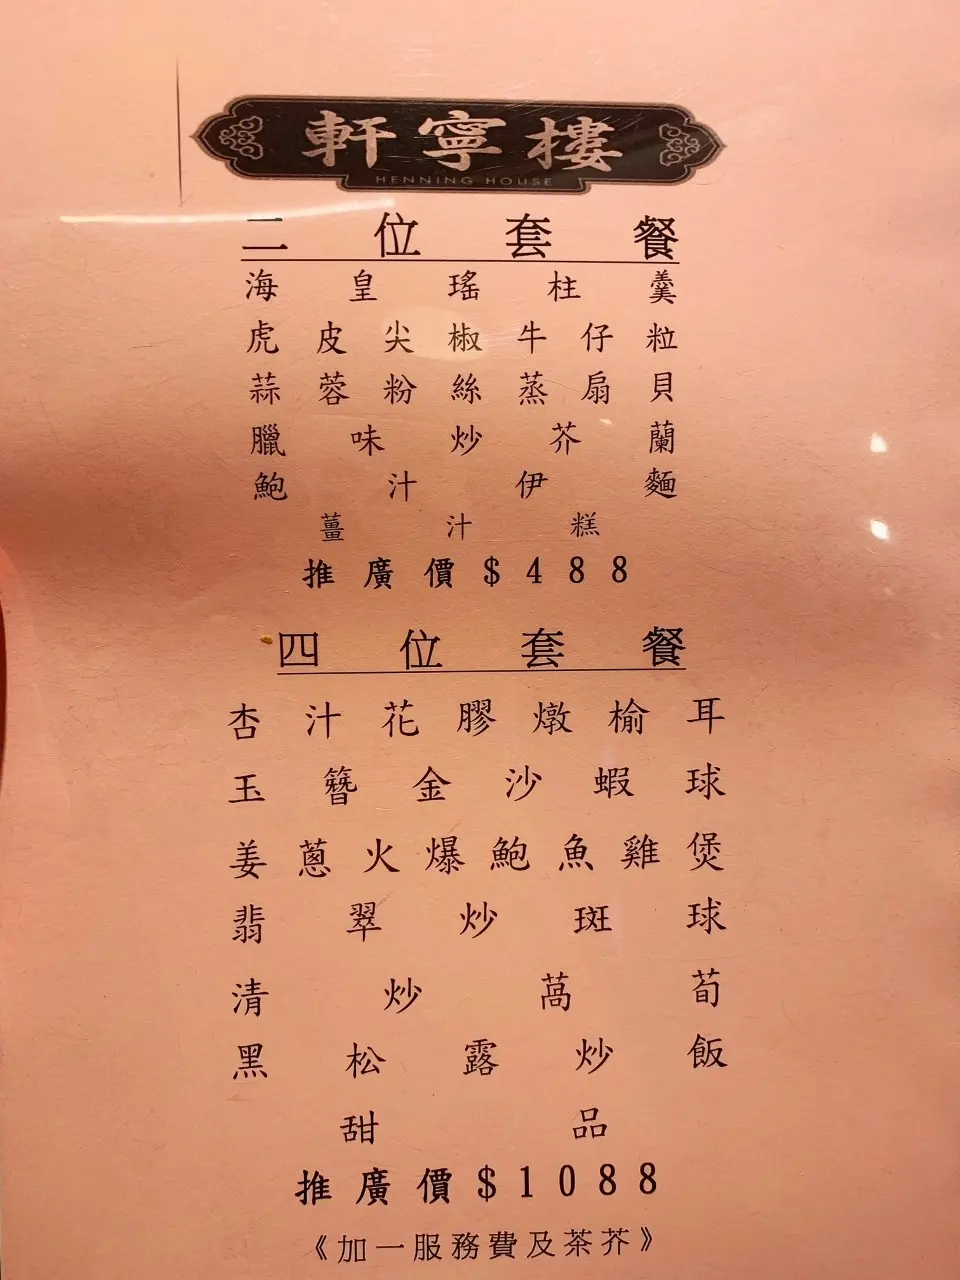 軒寧樓
HENNING HOUSE
二位套餐
海皇瑤柱羹
虎皮尖椒牛仔粒
蒜蓉粉絲蒸扇貝
臘味炒芥蘭
鮑汁伊麵
薑汁糕
推廣價$488
四位套餐
杏汁花膠燉榆耳
玉簪金沙蝦球
姜蔥火爆鮑魚雞煲
翡翠炒斑球
清炒萵荀
黑松露炒飯
甜品
推廣價$1088
《加一服務費及茶芥》